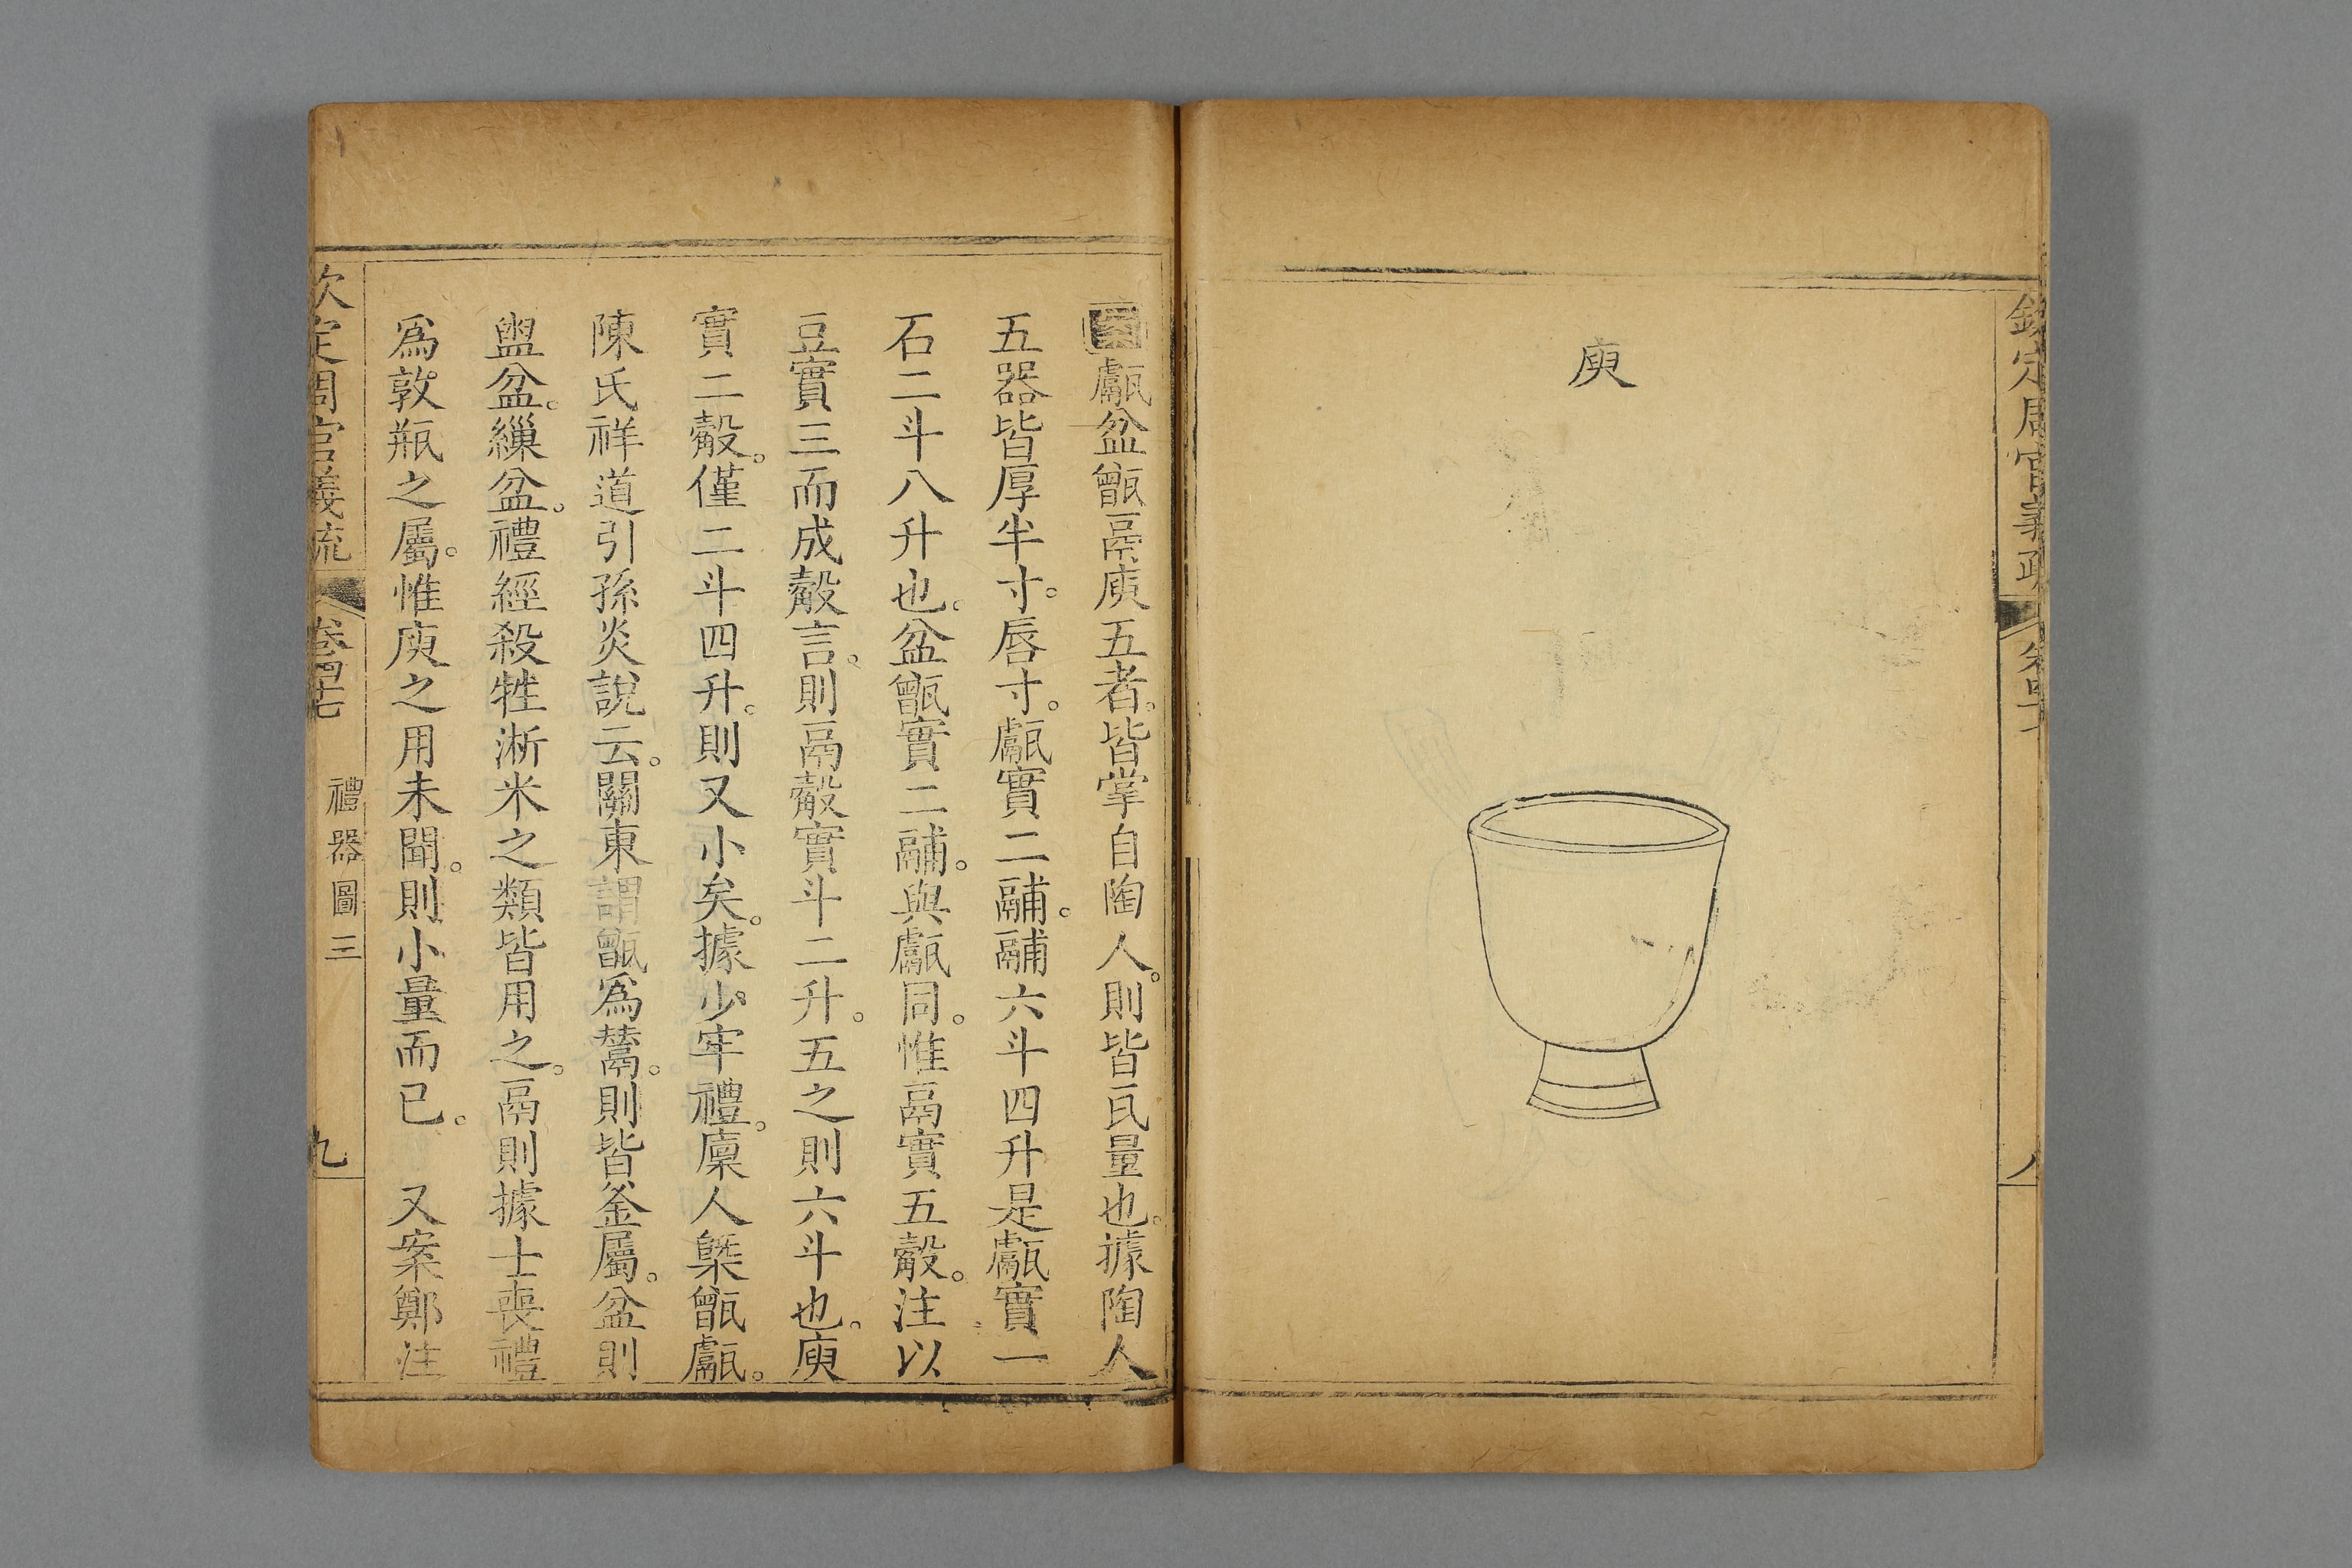 欽定周官義疏 卷四十七 八
庾
甗盆甑鬲庾五者。皆掌自陶人。則皆瓦量也。據陶人
五器皆厚半寸。唇寸。甗實二鬴。鬴六斗四升是甗實一
石二斗八升也。盆甑實二鬴。與甗同。惟鬲實五觳。注以
豆實三而成觳言。則鬲觳實斗二升。五之則六斗也。庾
實二觳。僅二斗四升。則又小矣。據少牢禮。廩人槩甑甗。
陳氏祥道引孫炎說云。關東謂甑爲鬵。則皆釜屬。盆則
盥盆。繅盆。禮經殺牲淅米之類皆用之。鬲則據士喪禮
爲敦瓶之屬。惟庾之用未聞。則小量而已。 又案鄭注
欽定周官義疏 卷四十七 禮器圖三 九